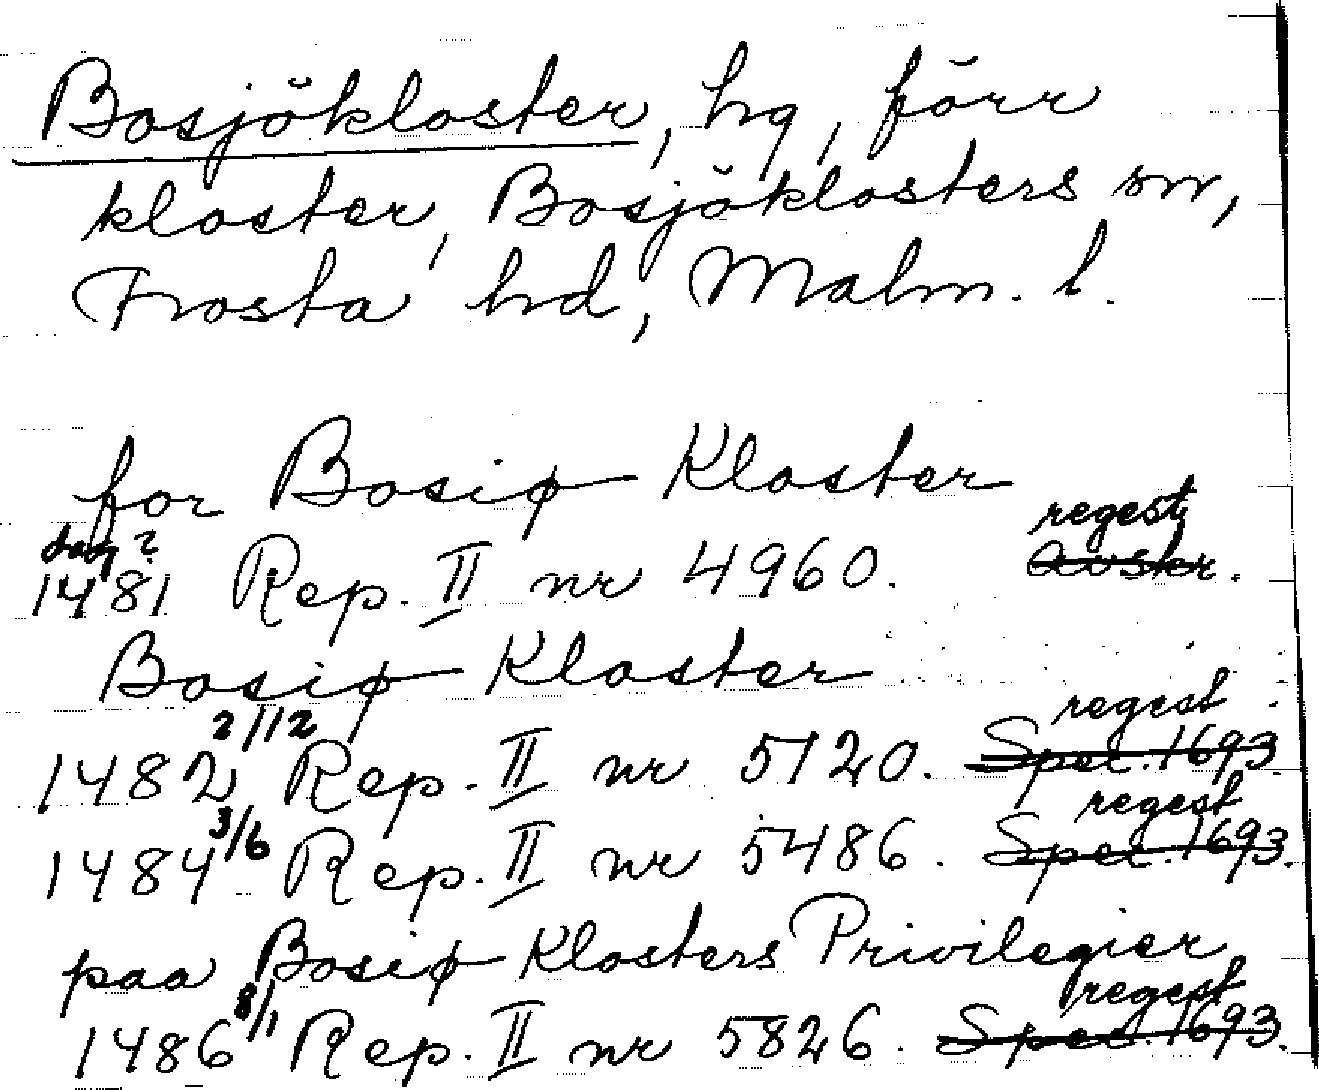 Bosjökloster, hg, förr
kloster, Bosjöklosters sn,
Frosta hd, Malm. l.
for Bosiø Kloster
dag? regest
1481 Rep. II nr 4960. Avskr.
Bosiø Kloster
2/12 regest
1482 Rep. II nr 5120. Spec. 1693
3/6 regest
1484 Rep. II nr 5486. Spec. 1693.
paa Bosiø Klosters Privilegier
8/1 regest
1486 Rep. II nr 5826. Spec. 1693.